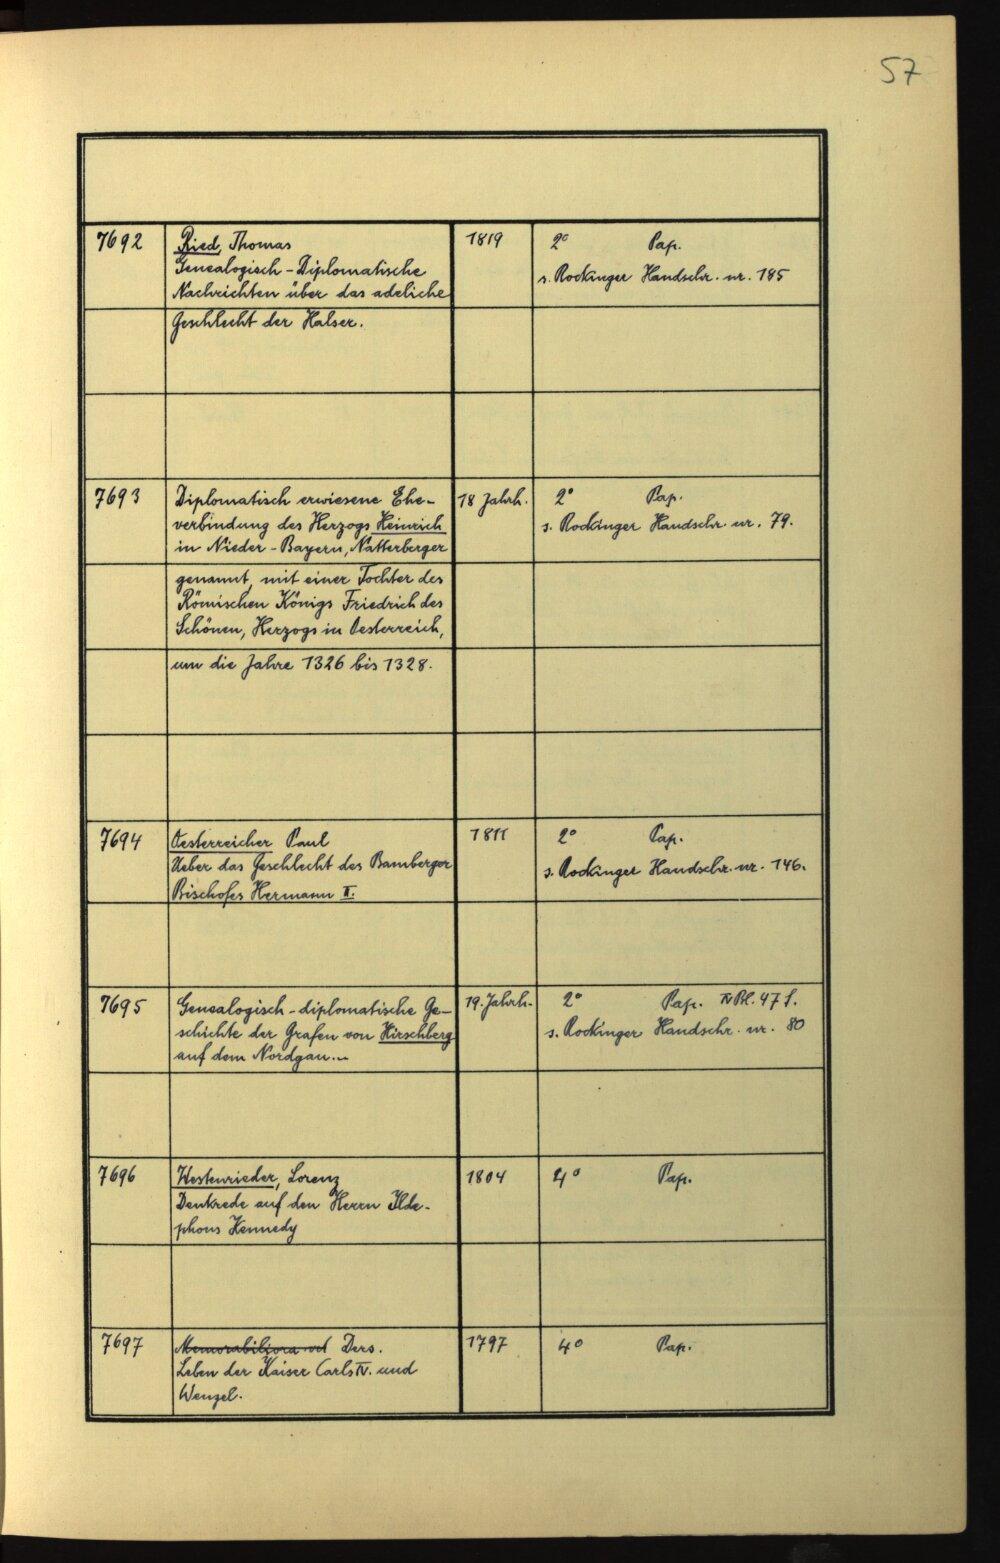 57
7692 Ried, Thomas 1819 2° Pap.
Genealogisch-Diplomatische s. Rockinger Handschr. nr. 185
Nachrichten über das adeliche
Geschlecht der Halser.
7693 Diplomatisch erwiesene Ehe- 18 Jahrh. 2° Pap.
verbindung des Herzogs Heinrich s. Rockinger Handschr. nr. 79.
in Nieder-Bayern, Natterberger
genannt, mit einer Tochter des
Römischen Königs Friedrich des
Schönen, Herzogs in Oesterreich,
um die Jahre 1326 bis 1328.
7694 Oesterreicher Paul 1811 2° Pap.
Ueber das Geschlecht des Bamberger s. Rockinger Handschr. nr. 146.
Bischofes Hermann II.
7695 Genealogisch-diplomatische Ge- 19. Jahrh. 2° Pap. IV Bl. 47 S.
schichte der Grafen von Hirschberg s. Rockinger Handschr. nr. 80
auf dem Nordgau...
7696 Westenrieder, Lorenz 1804 4° Pap.
Denkrede auf den Herrn Ilde-
phons Kennedy
7697 Ders. 1797 4° Pap.
Leben der Kaiser Carls IV. und
Wenzel.